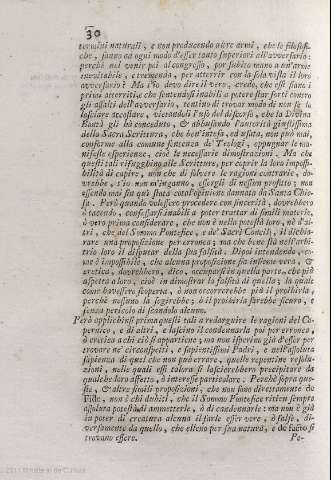 30
termini naturali, e non producendo altre armi, che le filosofi-
che, sanno ad ogni modo d'esser tanto superiori all'avversario:
perchè nel venir poi al congresso, por subito mano a un'arme
inevitabile, e tremenda, per atterrir con la sola vista il loro
avversario? Ma s'io devo dire il vero, credo, che essi siano i
primi atterriti, e che sentendosi inabili a potere star forti contro
gli assalti dell'avversario, tentino di trovar modo di non se lo
lasciare accostare, vietandoli l'uso del discorso, che la Divina
Bontà gli hà conceduto, & abusando l'autorità giustissima
della Sacra Scrittura, che ben'intesa, ed usata, non può mai,
conforme alla comune sentenza de' Teologi, oppugnar le ma-
nifeste esperienze, ò le necessarie dimostrazioni. Ma che
questi tali rifugghino alle Scritture, per coprir la loro impossi-
bilità di capire, non che di solvere le ragioni contrarie, do-
vrebbe, s'io non m'inganno, essergli di nessun profitto; non
essendo mai sin quì stata cotal'opinione dannata da Santa Chie-
sa. Però quando volessero procedere con sincerità, dovrebbero
ò tacendo, confessarsi inabili a poter trattar di simili materie,
ò vero prima considerare, che non è nella potestà loro, nè d'al-
tri, che del Sommo Pontefice, e de' Sacri Concilj, il dichia-
rare una proposizione per erronea; ma che bene stà nell'arbi-
trio loro il disputar della sua falsità. Dipoi intendendo, co-
me è impossibile, che alcuna proposizione sia insieme vera, &
eretica, dovrebbero, dico, occuparsi in quella parte, che più
aspetta a loro, cioè in dimostrar la falsità di quella; la quale
come havessero scoperta, ò non occorrerebbe più il proibirla,
perchè nessuno la seguirebbe; ò il proibirla sarebbe sicuro, e
senza pericolo di scandalo alcuno.
Però applichinsi prima questi tali a redarguire le ragioni del Co-
pernico, e di altri, e lascino il condennarla poi per erronea,
ò eretica a chi ciò si appartiene; ma non isperino già d'esser per
trovare ne' circospetti, e sapientissimi Padri, e nell'assoluta
sapienza di quel che non può errare, quelle repentine resolu-
zioni, nelle quali essi talora si lascierebbero precipitare da
qualche loro affetto, ò interesse particolare. Perchè sopra que-
ste, & altre simili proposizioni, che non sono direttamente de
Fide, non è chi dubiti, che il Sommo Pontefice ritien sempre
assoluta potestà di ammetterle, ò di condannarle: ma non è già
in poter di creatura alcuna il farle esser vere, ò false, di-
versamente da quello, che elleno per sua natura, e de facto si
trovano essere.
Po-